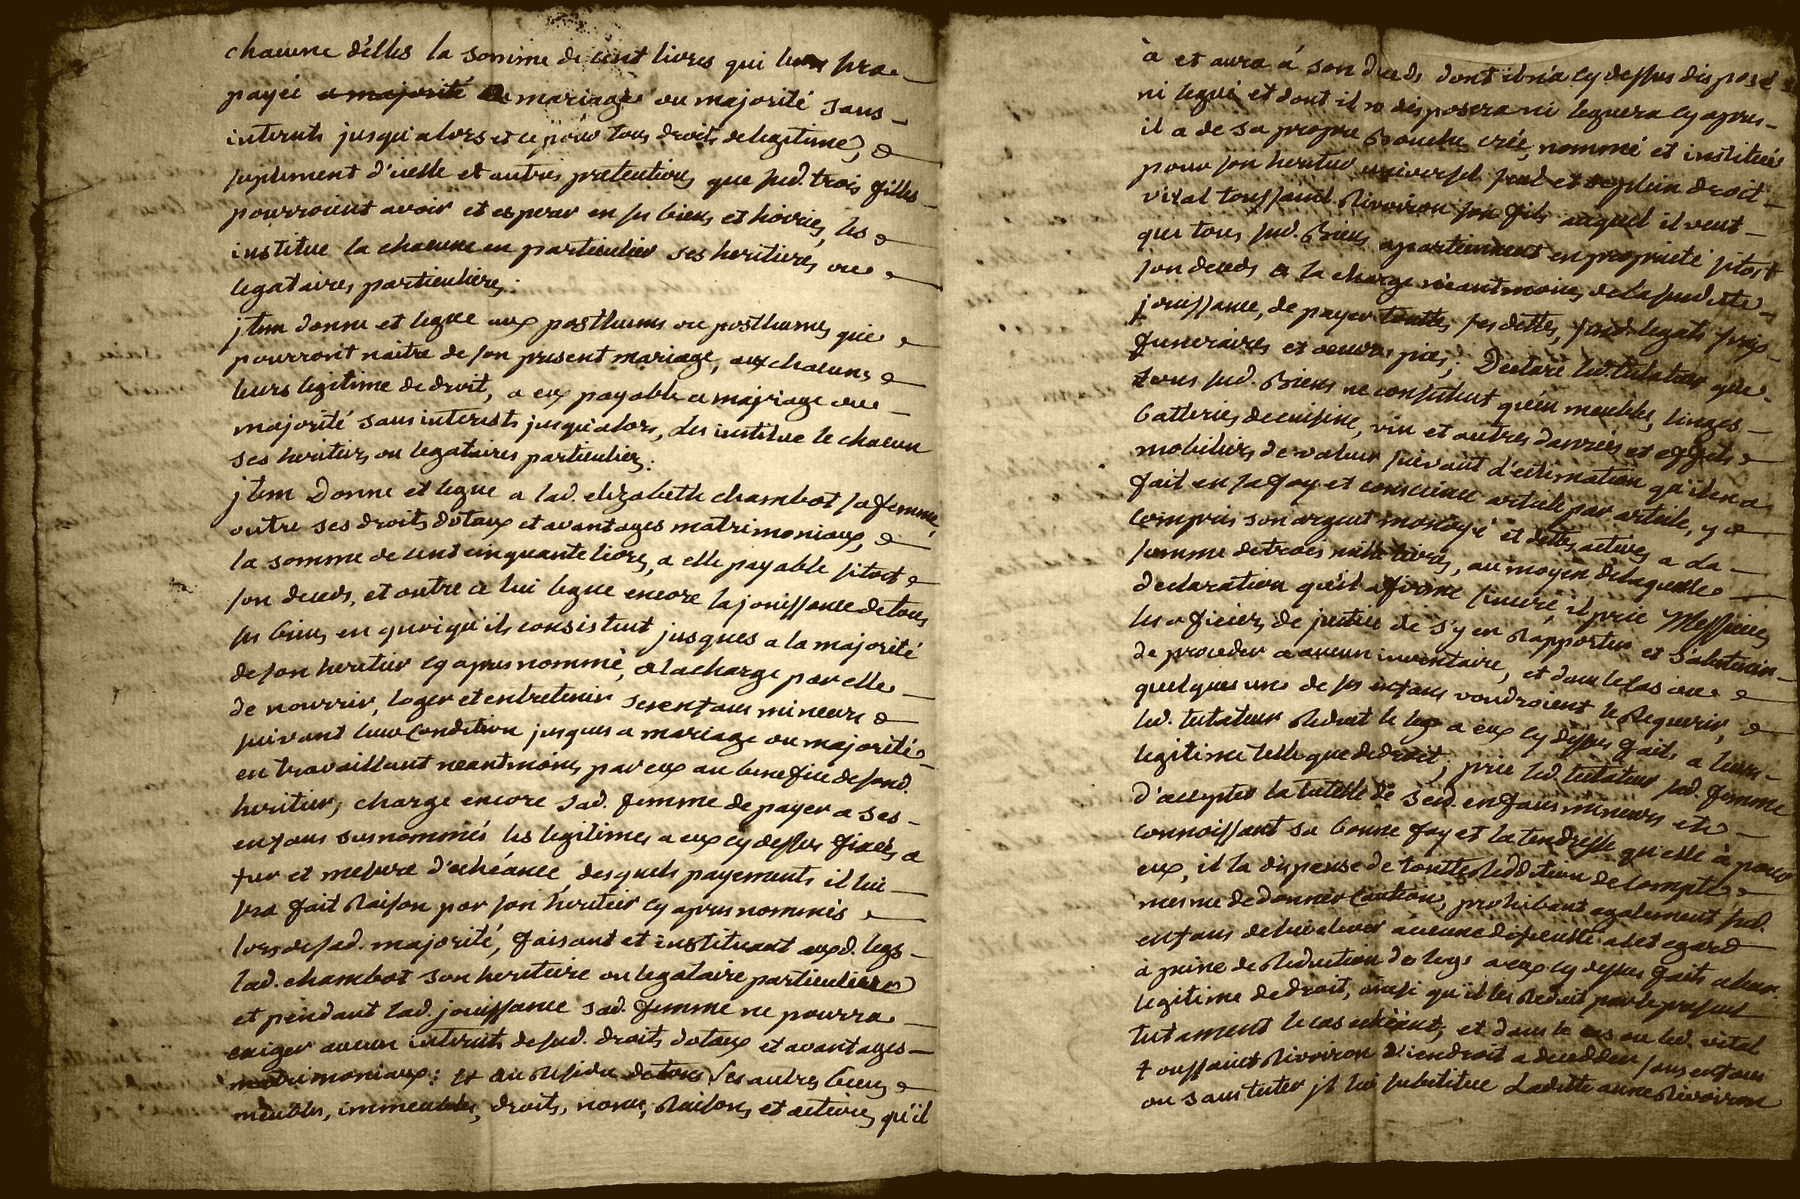 chacune d'elles la somme de cent livres qui leur sera
payéé a majorité a mariage ou majorité sans
interrets jusqu'alors et ce pour tous droits de legitime, &
suplement d'icelle et autres pretentions que sesd. trois filles
pourroient avoir et esperer en ses biens et hoirie, les &
institue la chacune en particulier ses heritieres ou
legataires particulieres.
jtem donne et legue aux posthumes ou posthumes que
pourront naitre de son present mariage, aux chacuns &
leurs legitime de droit, a eux payable a mariage ou
majorité sans interests jusqu'alors, les institue le chacun
ses heritiers ou legataires particuliers.
jtem Donne et legue a lad. elizabeth chambot sa femme,
outre ses droits dotaux et avantages matrimoniaux, &
la somme de cent cinquante livres, a elle payable sitost &
son deceds, et outre ce lui legue encore la jouissance de tous
ses biens en quoi qu'ils consistent jusques a la majorité
de son heritier cy apres nommé, a la charge par elle
de nourrir, loger et entretenir ses enfans mineurs &
suivant leur Condition jusques a mariage ou majorité
en travaillant neantmoins par eux au benefice de sond.
heritier; charge encore sad. femme de payer a ses
enfans susnommés les legitimes a eux cy dessus fixées a
fur et mesure d'echéance desquels payements il lui
sera fait Raison par son heritier cy apres nommés
lors de sad. majorité, faisant et instituant auxd. legs
lad. chambot son heritiere ou legataire particuliere
et pendant lad. jouissance sad. femme ne pourra
exiger aucun interrets de sesd. droits dotaux et avantages
matrimoniaux: Et au Residu de tous ses autres biens &
meubles, immeubles, droits, noms, Raisons et actions qu'il
à et aura á son deceds dont il n'a cy dessus disposé
ni legué et dont il ne disposera ni leguera cy apres
il a de sa propre Bouche créé, nommé et institué
pour son heritier universel seul et de plein droit
vital toussaint Rivoiron son fils auquel il veut
que tous sesd. Biens apartiennent en proprieté sitost
son deceds a la charge neantmoins de la susditte
jouissance, de payer touttes ses dettes, susd. legats frais
funeraires et oeuvres pies; Declare led. testateur que
tous sesd. Biens ne consistent qu'en meubles, linges
batteries de cuisine, vin et autres danrées et effets &
mobiliers de valeur suivant l'estimation qu'il en a
fait en sa foy et conscience article par article, y &
compris son argent monoyé et dettes actives a la
somme de trois mille livres, au moyen de laquelle
declaration qu'il afirme sincere il prie Messieurs
les oficiers de justice de s'y en Rapporter et s'abstenir
de proceder a aucun inventaire, et dans le cas ou &
quelques uns de ses enfans voudroient le Requerir, &
led. testateur Reduit le legs a eux cy dessus fait a leur
legitime telle que de droit; prie led. testateur sad. femme
d'accepter la tutelle de sesd. enfans mineurs et
connoissant sa bonne foy et la tendresse qu'elle à pour
eux, il la dispense de toutte Reddition de Compte &
mesme de donner Caution, prohibant egalement sesd.
enfans de lui elever aucune dificulté a cet egard
à peine de Reduction des legs a eux cy dessus faits a leur
legitime de droit, ainsi qu'il les Reduit par le present
testament le cas echéant; et dans le cas ou led. vital
toussaint Rivoiron viendroit a decedder sans enfans
ou sans tester jl lui substitue Laditte anne Rivoiron